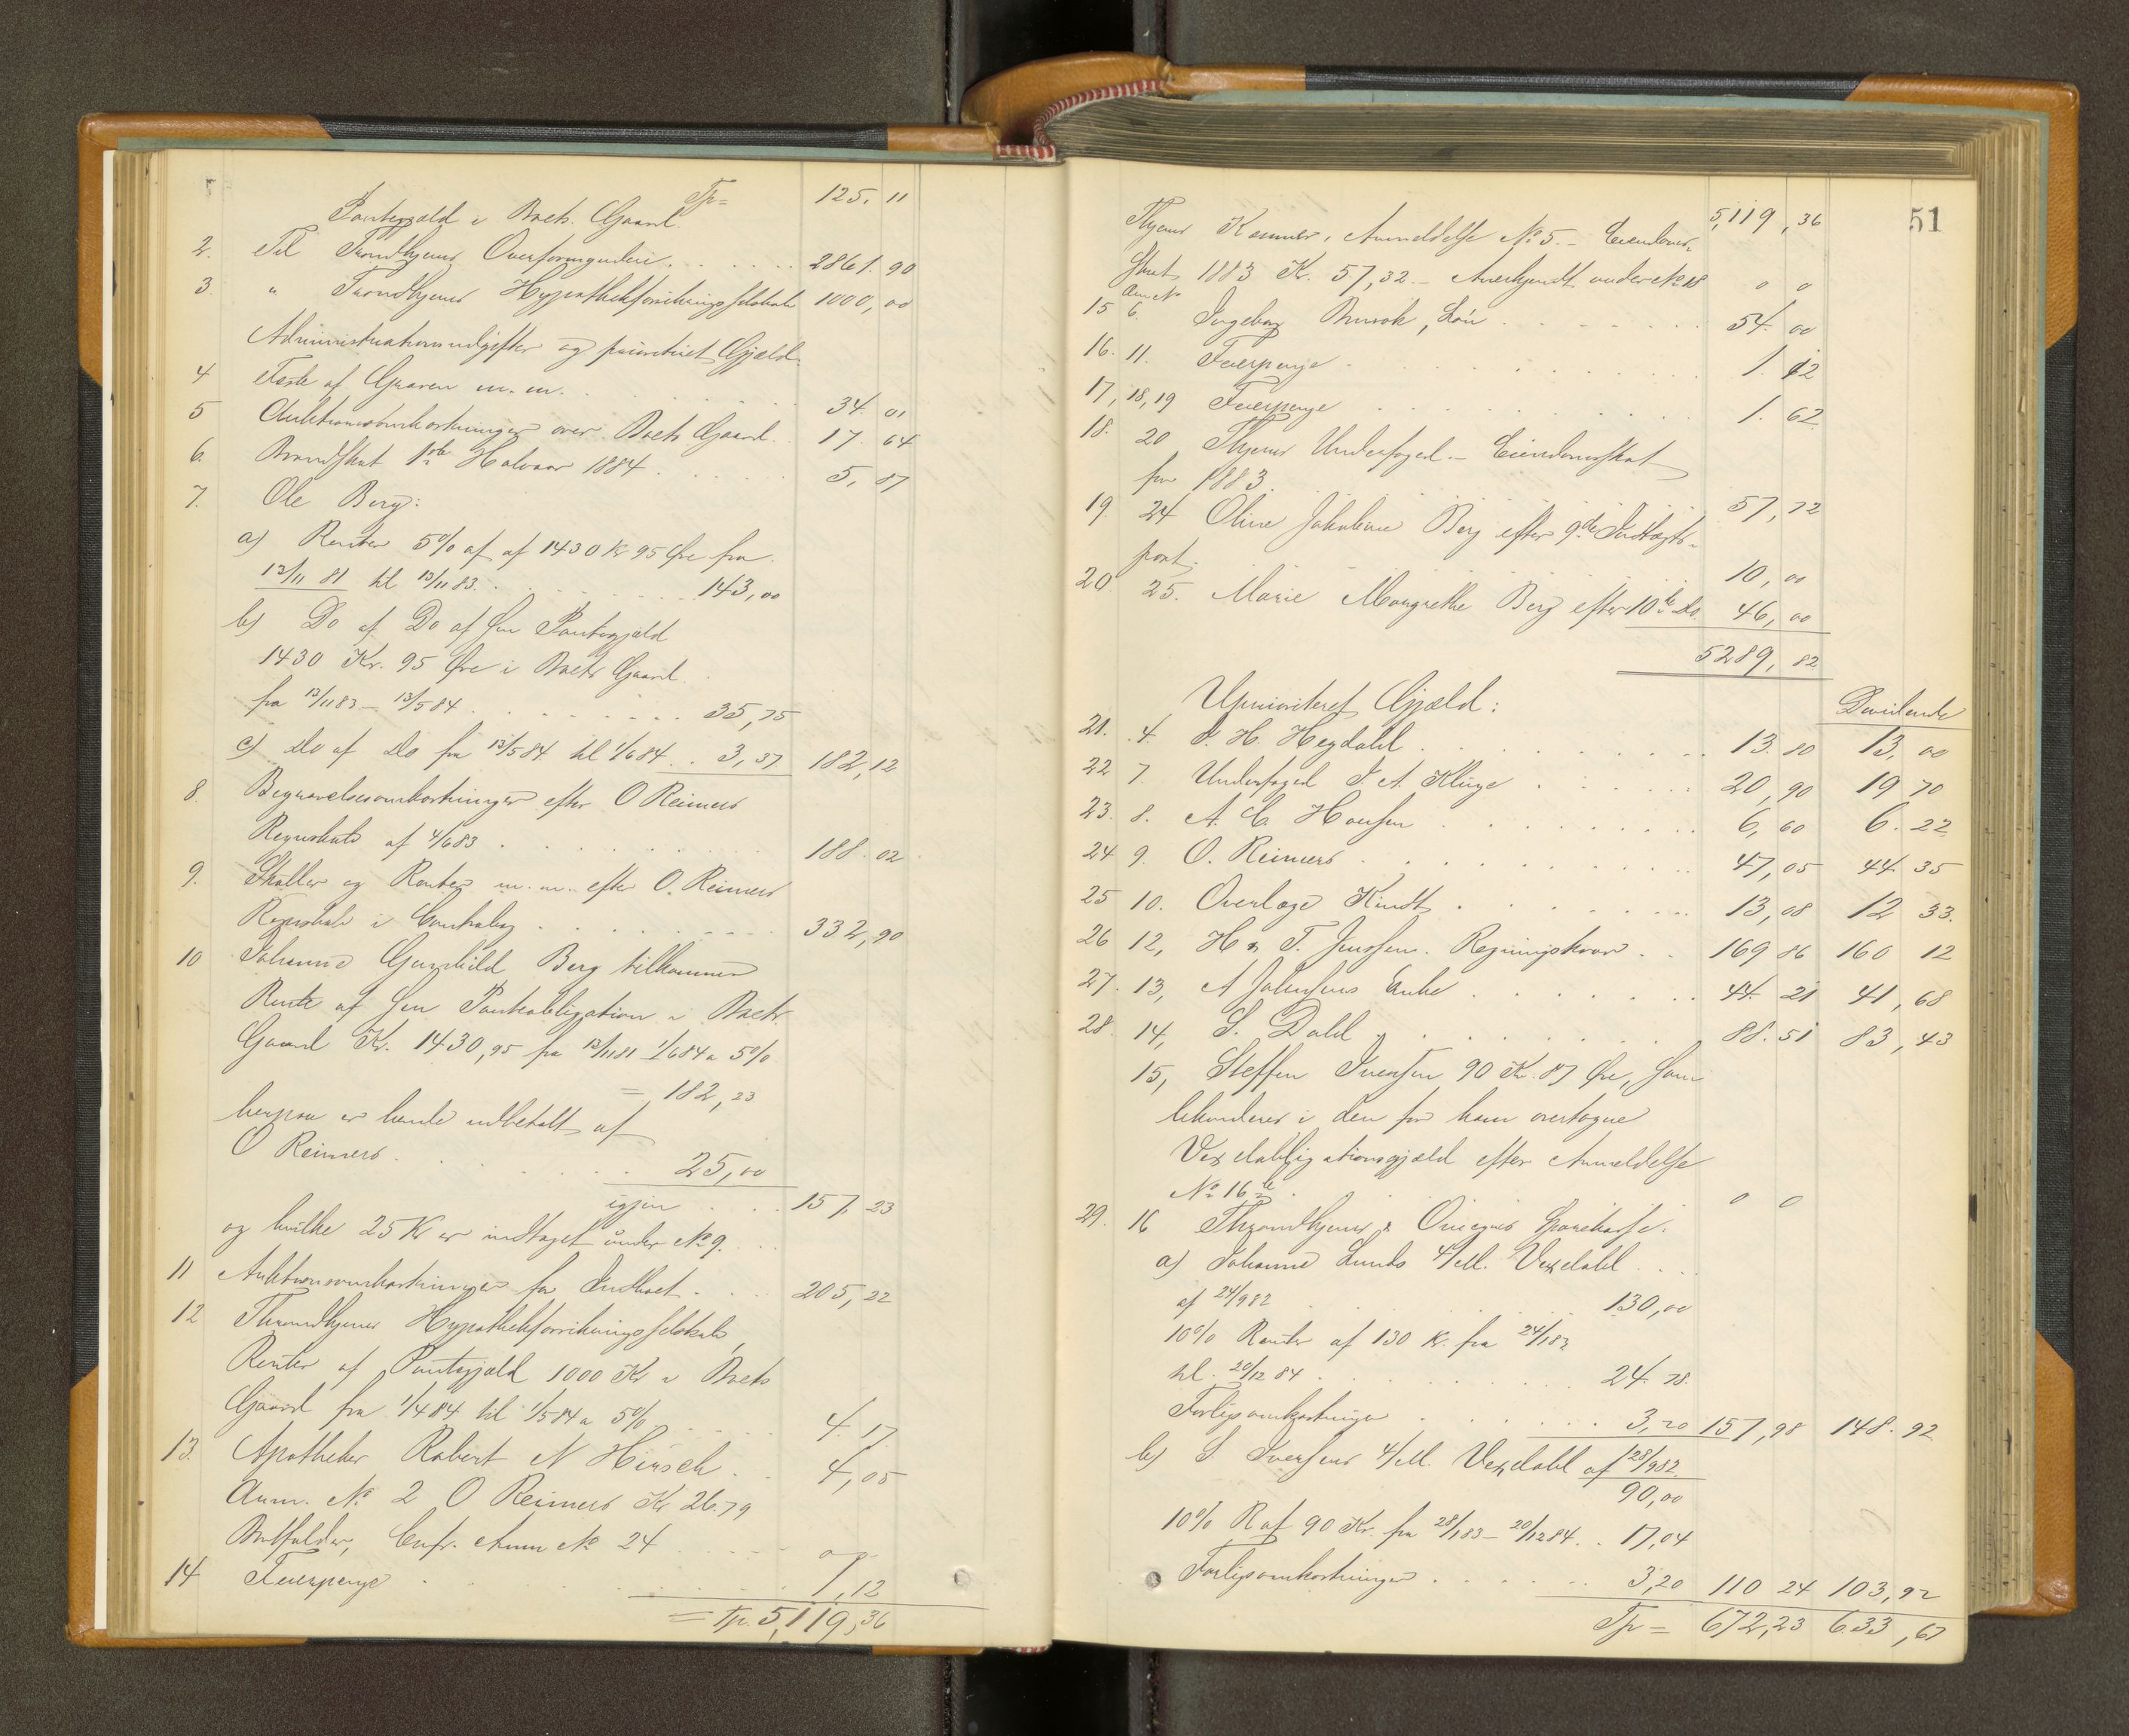 Tp= 125, 11
Pantegjæld i Boets Gaard.
2. Til Trondhjems Overformynderi 2861. 90
3 " Trondhjems Hypothekforsikringsselskab 1000, 00
Administrationsudgifter og prioritiret Gjæld.
4 Fæste af Graven m. m. 34. 01
5 Auktionsomkostninger over Boets Gaard. 17. 64
6. Brandskat 1ste Halvaar 1884 5, 87
7. Ole Berg:
a) Renter 5% af af 1430 Kr 95 Øre fra
13/11 81 til 13/11 83 143,00
b) Do af Do af sin Pantegjæld
1430 Kr. 95 Øre i Boets Gaard
fra 13/11 83 – 13/5 84 35,75
c) Do af Do fra 13/5 84 til 1/6 84 3,37 182,12
8. Begravelsesomkostninger efter O Reimers
Regnskab af 4/6 83 188. 02
9. Skatter og Renter m. m. efter O. Reimers
Regnskab i 332,90
10 Johanne Gunhild Berg tilkommer
Rente af sin Pantobligation i Boets
Gaard Kr. 1430,95 fra 13/11 81 – 1/6 84 a 5%
= 182,23
herpaa er hende udbetalt af
O Reimers 25,00
igjen 157. 23
og hvilke 25 Kr er indtaget under No 9.
11 Auktionsomkostninger for Indboet 205, 22
12 Throndhjems Hypothekforsikringsselskab,
Renter af Pantegjæld 1000 Kr i Boets
Gaard fra 1/4 84 til 1/5 84 a 5% 4. 17
13. Apotheker Robert N Hirsch 4,05
Anm. No 2 O Reimers Kr 26.79
Bortfalder, Cnfr. Anm No 24
14 Feierpenge 1,12
= Tp. 5,119,36
51
5,119, 36
Thjems Kæmner, Anmeldelse No 5. – Eiendoms-
skat 1883 Kr. 57,32. – Anerkjendt under No 18 0 0
Anm No
15 6. Ingeborg Løn 54. 00
16. 11. Feierpenge 1. 12
17, 18, 19 Feierpenge 1. 62
18. 20 Thjems Underfoged – Eiendomsskat
for 1883 57,72
19 24 Oline Jakobine Berg efter 9de Indtægts-
post 10,00
20 25. Marie Margrethe Berg efter 10de Do. 46,00
5289, 82
Uprioriteret Gjæld:
Dividende
21. 4 I. H. Hegdahl 13. 80 13, 00
22 7. Underfoged I A. Klüge 20,90 19 70
23. 8. A. C. Hansen 6,60 6. 22
24 9. O. Reimers 47,05 44. 35
25 10. Overlæge Kindt 13,08 12 33.
26 12, H & T. Jenssen. Regningskrav 169 86 160 12
27. 13, A Johnsens Enke 44. 21 41,68
28. 14, S. Dahl 88. 51 83, 43
15, Steffen Iversen 90 Kr. 87 Øre, som
likvideres i den for ham overtagne
Vexelobligationsgjæld efter Anmeldelse
No 16 b 0 0
29. 16 Throndhjems & Omegns Sparekasse.
a) Johanne Lunds 4/M. Vexelobl
af 24/9 82 130,00
10% Renter af 130 Kr. fra 24/1 83
til 20/12 84 24. 78.
Forligsomkostninger 3,20 157,98 148. 92
b) S Iversens 4/M. Vexelobl af 28/9 82
90,00
10% R af 90 Kr. fra 28/1 83 – 20/12 84 17,04
Forligsomkostninger 3,20 110 24 103,92
Tp = 672,23 633,67